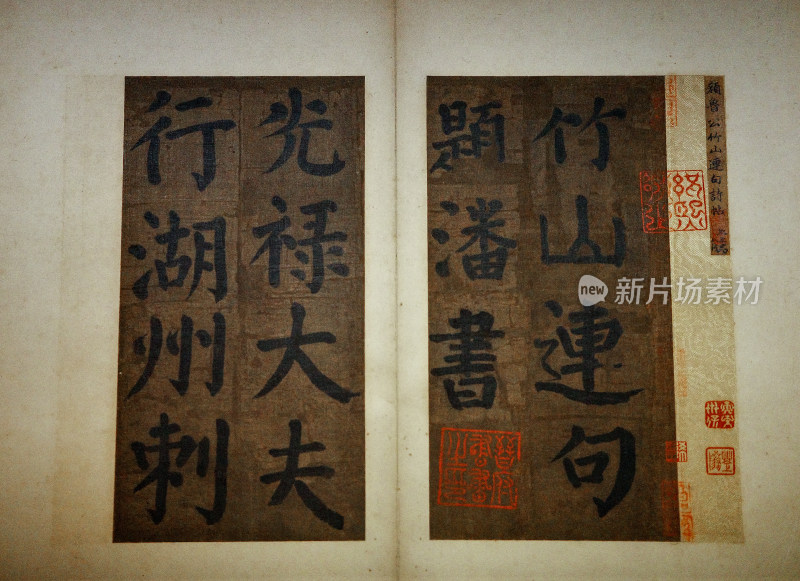 顏魯公竹山連句詩帖
竹山連句
題潘書
光禄大夫
行湖州刺
new 新片场素材